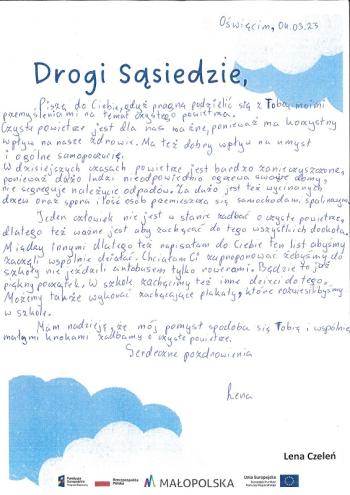 Oświęcim, 04.03.23
Drogi Sąsiedzie,
Piszę do Ciebie, gdyż pragnę podzielić się z Tobą moimi
przemyśleniami na temat czystego powietrza.
Czyste powietrze jest dla nas ważne, ponieważ ma korzystny
wpływ na nasze zdrowie. Ma też dobry wpływ na umysł
i ogólne samopoczucie.
W dzisiejszych czasach powietrze jest bardzo zanieczyszczone,
ponieważ dużo ludzi nieodpowiednio ogrzewa swoje domy,
nie segreguje należycie odpadów. Za dużo jest też wycinanych
drzew oraz spora ilość osób przemieszcza się samochodami, spalinowymi.
Jeden człowiek nie jest w stanie zadbać o czyste powietrze,
dlatego też ważne jest aby zachęcać do tego wszystkich dookoła.
Między innymi dlatego też napisałam do Ciebie ten list abyśmy
zaczęli wspólnie działać. Chciałam Ci zaproponować żebyśmy do
szkoły nie jeździli autobusem tylko rowerami. Będzie to już
piękny początek. W szkole zachęcimy też inne dzieci do tego.
Możemy także wykonać zachęcające plakaty, które rozwiesilibyśmy
w szkole.
Mam nadzieję, że mój pomysł spodoba się Tobie i wspólnie
małymi krokami zadbamy o czyste powietrze.
Serdeczne pozdrowienia
Lena
Lena Czeleń
Fundusze Europejskie
Rzeczpospolita Polska
MAŁOPOLSKA
Unia Europejska